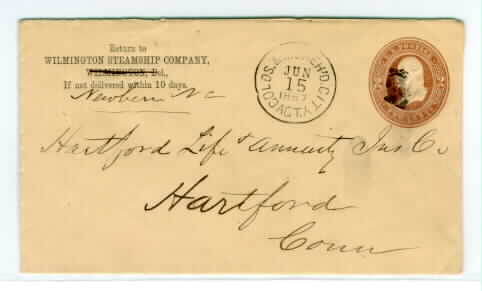 Return to
WILMINGTON STEAMSHIP COMPANY,
WILMINGTON, Del.,
If not delivered within 10 days.
Newbern NC
JUN
15
Hartford Life & Annuity Ins Co
Hartford
Conn